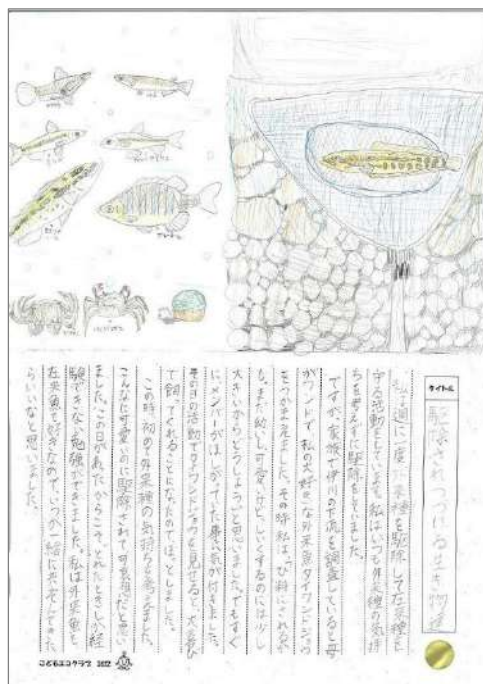 タイトル
駆除されつづける生き物達
私は週に一度外来種を駆除して在来種を
守る活動をしています。私はいつも外来種の気持
ちを考えずに駆除をしていました。
ですが、家族で伊川の下流を調査していると母
がワンドで、私の大好きな外来魚タイワンドジョウ
をつかまえました。その時私は、
も、まだ幼いし可愛いけど
大きいからどうしようと思いました。でもすぐ
に、メンバーがほしがっていた事に気が付きました。
その日の活動でタイワンドジョウを見せると、大喜び
で飼ってくれることになったのでほっとしました。
この時、初めて外来種の気持ちを考えました。
こんなに可愛いのに駆除されて可哀想だと思い
ました。この日があったからこそ、とれたときしか経
験できない勉強ができました。私は外来魚も
在来魚も好きなので、いつか一緒に
らいいなと思いました。
こどもエコクラブ 2022